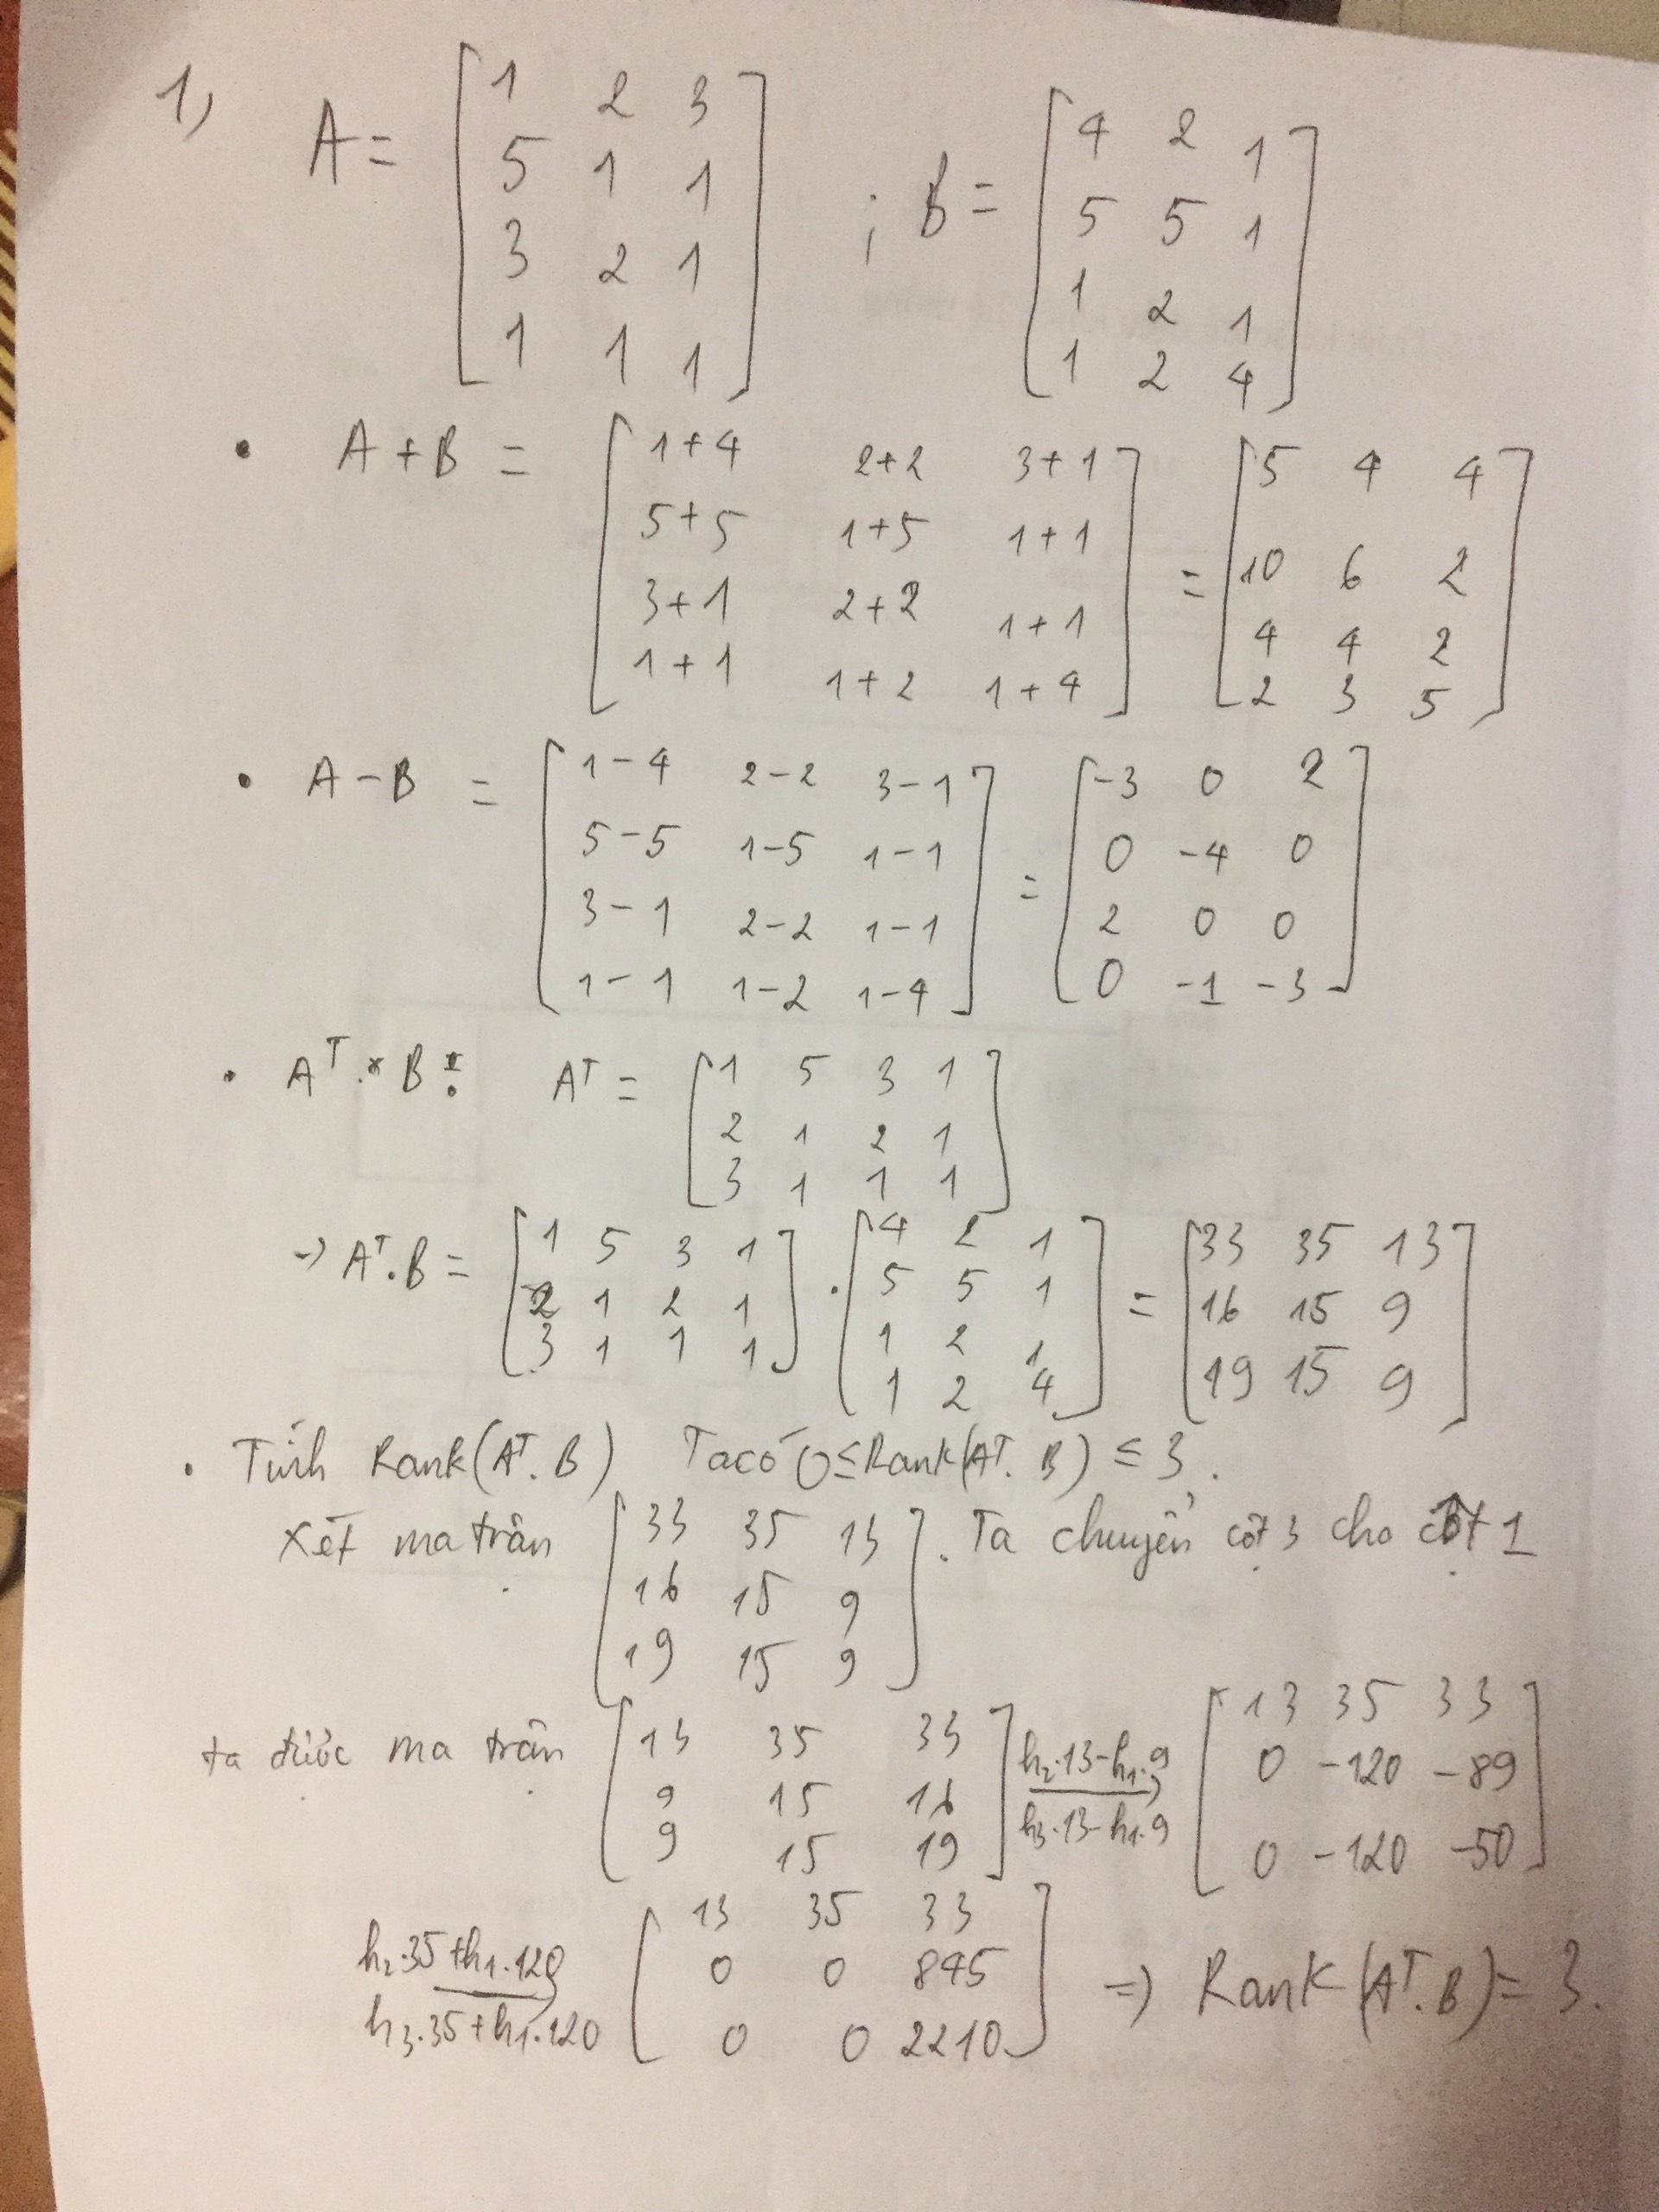 1) A = [1 2 3; 5 1 1; 3 2 1; 1 1 1] ; B = [4 2 1; 5 5 1; 1 2 1; 1 2 4]
• A + B = [1+4 2+2 3+1; 5+5 1+5 1+1; 3+1 2+2 1+1; 1+1 1+2 1+4] = [5 4 4; 10 6 2; 4 4 2; 2 3 5]
• A - B = [1-4 2-2 3-1; 5-5 1-5 1-1; 3-1 2-2 1-1; 1-1 1-2 1-4] = [-3 0 2; 0 -4 0; 2 0 0; 0 -1 -3]
• Aᵀ.B : Aᵀ = [1 5 3 1; 2 1 2 1; 3 1 1 1]
→ Aᵀ.B = [1 5 3 1; 2 1 2 1; 3 1 1 1] . [4 2 1; 5 5 1; 1 2 1; 1 2 4] = [33 35 13; 16 15 9; 19 15 9]
• Tính Rank(Aᵀ.B) Ta có 0 ≤ Rank(Aᵀ.B) ≤ 3.
Xét ma trận [33 35 13; 16 15 9; 19 15 9]. Ta chuyển cột 3 cho cột 1
ta được ma trận [13 35 33; 9 15 16; 9 15 19] h₂.13-h₁.9 → h₃.13-h₁.9 [13 35 33; 0 -120 -89; 0 -120 -50]
h₂.35+h₁.120 → h₃.35+h₁.120 [13 35 33; 0 0 845; 0 0 2210] ⇒ Rank(Aᵀ.B) = 3.